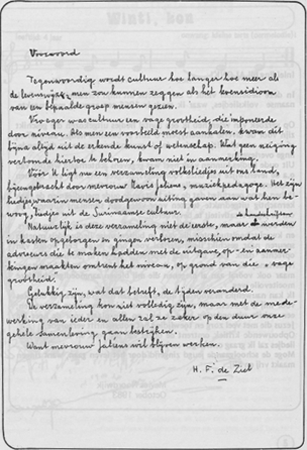 Voorwoord
Tegenwoordig wordt cultuur hoe langer hoe meer als
de levenswijze, men zou kunnen zeggen als het levensidioom
van een bepaalde groep mensen gezien.
Vroeger was cultuur een vage grootheid, die imponeerde
door niveau. Als men een voorbeeld moest aanhalen, kwam dit
bijna altijd uit de erkende kunst of wetenschap. Wat geen neiging
vertoonde hiertoe te behoren, kwam niet in aanmerking.
Vóór U ligt nu een verzameling volksliedjes uit ons land,
bijeengebracht door mevrouw Lavis Juliens, muziekpedagoge. Het zijn
liedjes waarin mensen doodgewoon uiting gaven aan wat hen be-
woog, liedjes uit de Surinaamse cultuur.
Natuurlijk is deze verzameling niet de eerste, maar de handschriften werden
in kasten opgeborgen en gingen verloren, misschien omdat de
adviseurs die te maken hadden met de uitgave, op- en aanmer-
kingen maakten omtrent het niveau, op grond van die vage
grootheid.
Gelukkig zijn, wat dat betreft, de tijden veranderd.
De verzameling kon niet volledig zijn, maar met de mede-
werking van ieder en allen zal ze zeker op den duur onze
gehele samenleving gaan bestrijken.
Want mevrouw Juliens wil blijven werken.
H. F. de Ziel